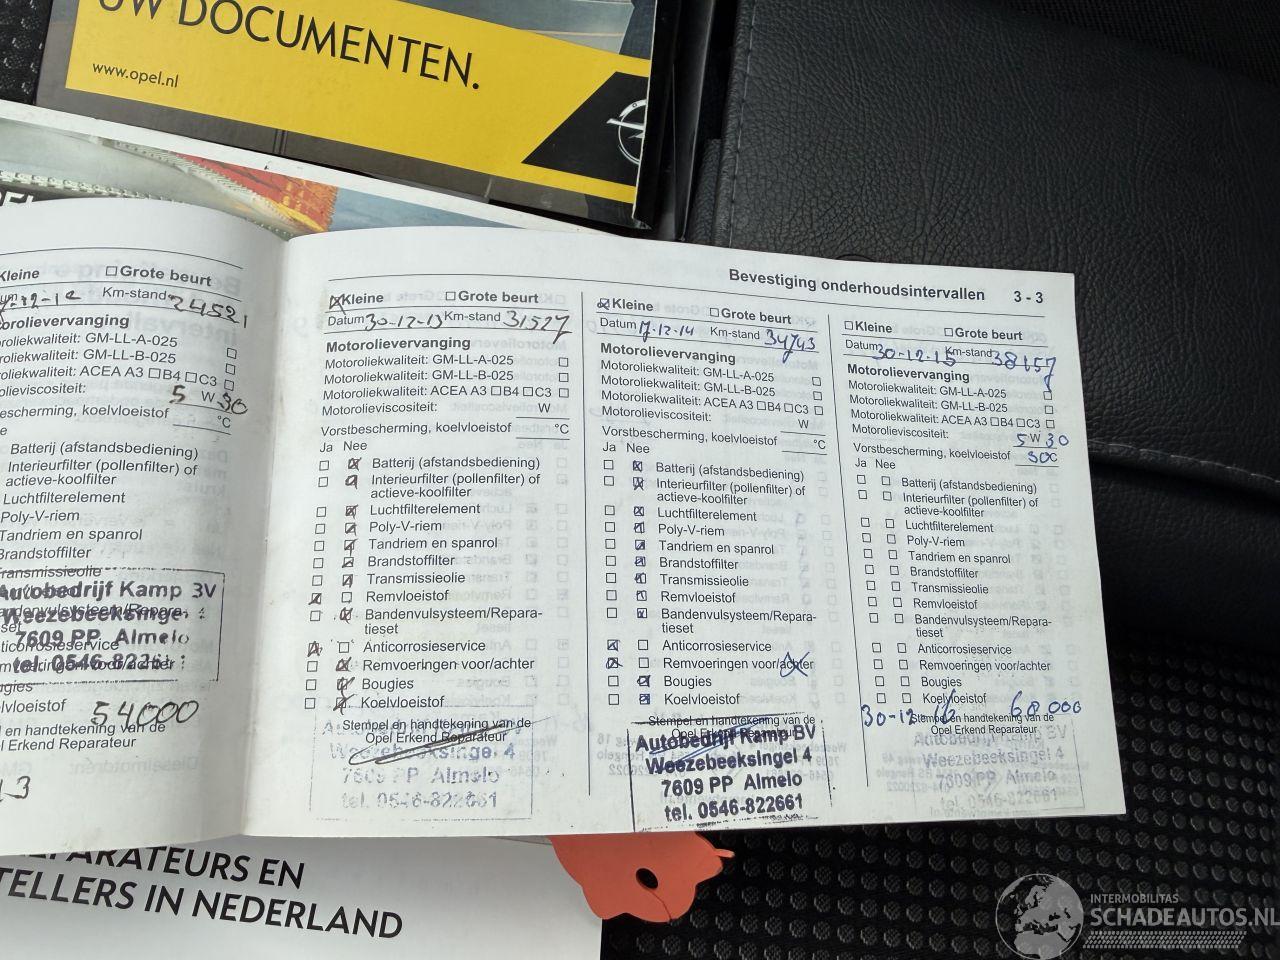 UW DOCUMENTEN.
www.opel.nl
Kleine ☐ Grote beurt
Km-stand 24521
Motoroliekwaliteit: GM-LL-A-025
GM-LL-B-025
ACEA A3 ☐B4 ☐C3
5 W 30
°C
Batterij (afstandsbediening)
Interieurfilter (pollenfilter) of
actieve-koolfilter
Luchtfilterelement
Poly-V-riem
Tandriem en spanrol
Brandstoffilter
Transmissieolie
Autobedrijf Kamp BV
Weezebeeksingel 4
7609 PP Almelo
tel. 0546-822661
54000
Stempel en handtekening van de
Opel Erkend Reparateur
Bevestiging onderhoudsintervallen 3 - 3
☒ Kleine ☐ Grote beurt
Datum 30-12-13 Km-stand 31527
Motorolievervanging
Motoroliekwaliteit: GM-LL-A-025 ☐
Motoroliekwaliteit: GM-LL-B-025 ☐
Motoroliekwaliteit: ACEA A3 ☐B4 ☐C3 ☐
Motorolieviscositeit: W
Vorstbescherming, koelvloeistof °C
Ja Nee
☐ ☒ Batterij (afstandsbediening)
☐ ☒ Interieurfilter (pollenfilter) of
actieve-koolfilter
☐ ☒ Luchtfilterelement
☐ ☒ Poly-V-riem
☐ ☒ Tandriem en spanrol
☐ ☒ Brandstoffilter
☐ ☒ Transmissieolie
☒ ☐ Remvloeistof
☐ ☒ Bandenvulsysteem/Repara-
tieset
☒ ☐ Anticorrosieservice
☐ ☒ Remvoeringen voor/achter
☐ ☒ Bougies
☐ ☒ Koelvloeistof
Stempel en handtekening van de
Opel Erkend Reparateur
Weezebeeksingel 4
7609 PP Almelo
tel. 0546-822661
☒ Kleine ☐ Grote beurt
Datum 17-12-14 Km-stand 34743
Motorolievervanging
Motoroliekwaliteit: GM-LL-A-025 ☐
Motoroliekwaliteit: GM-LL-B-025 ☐
Motoroliekwaliteit: ACEA A3 ☐B4 ☐C3 ☐
Motorolieviscositeit: W
Vorstbescherming, koelvloeistof °C
Ja Nee
☐ ☒ Batterij (afstandsbediening)
☐ ☒ Interieurfilter (pollenfilter) of
actieve-koolfilter
☐ ☒ Luchtfilterelement
☐ ☒ Poly-V-riem
☐ ☒ Tandriem en spanrol
☐ ☒ Brandstoffilter
☐ ☒ Transmissieolie
☐ ☒ Remvloeistof
☐ ☒ Bandenvulsysteem/Repara-
tieset
☒ ☐ Anticorrosieservice
☒ ☐ Remvoeringen voor/achter
☐ ☒ Bougies
☐ ☒ Koelvloeistof
Stempel en handtekening van de
Opel Erkend Reparateur
Autobedrijf Kamp BV
Weezebeeksingel 4
7609 PP Almelo
tel. 0546-822661
☐ Kleine ☐ Grote beurt
Datum 30-12-15 Km-stand 38157
Motorolievervanging
Motoroliekwaliteit: GM-LL-A-025 ☐
Motoroliekwaliteit: GM-LL-B-025 ☐
Motoroliekwaliteit: ACEA A3 ☐B4 ☐C3 ☐
Motorolieviscositeit: 5 W 30
Vorstbescherming, koelvloeistof 30 °C
Ja Nee
☐ ☐ Batterij (afstandsbediening)
☐ ☐ Interieurfilter (pollenfilter) of
actieve-koolfilter
☐ ☐ Luchtfilterelement
☐ ☐ Poly-V-riem
☐ ☐ Tandriem en spanrol
☐ ☐ Brandstoffilter
☐ ☐ Transmissieolie
☐ ☐ Remvloeistof
☐ ☐ Bandenvulsysteem/Repara-
tieset
☐ ☐ Anticorrosieservice
☐ ☐ Remvoeringen voor/achter
☐ ☐ Bougies
☐ ☐ Koelvloeistof
30-12-16 68000
Stempel en handtekening van de
Opel Erkend Reparateur
Autobedrijf Kamp BV
Weezebeeksingel 4
7609 PP Almelo
tel. 0546-822661
EN
IN NEDERLAND
INTERMOBILITAS
SCHADEAUTOS.NL